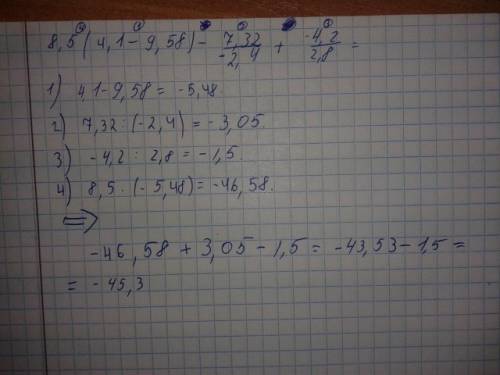 8,5(4,1-9,58)- 7,32/-2,4 + -4,2/2,8 =
1) 4,1-9,58= -5,48.
2) 7,32:(-2,4)= -3,05.
3) -4,2 : 2,8 = -1,5.
4) 8,5·(-5,48)= -46,58.
⇒
-46,58 + 3,05 - 1,5 = -43,53-1,5 =
= -45,3